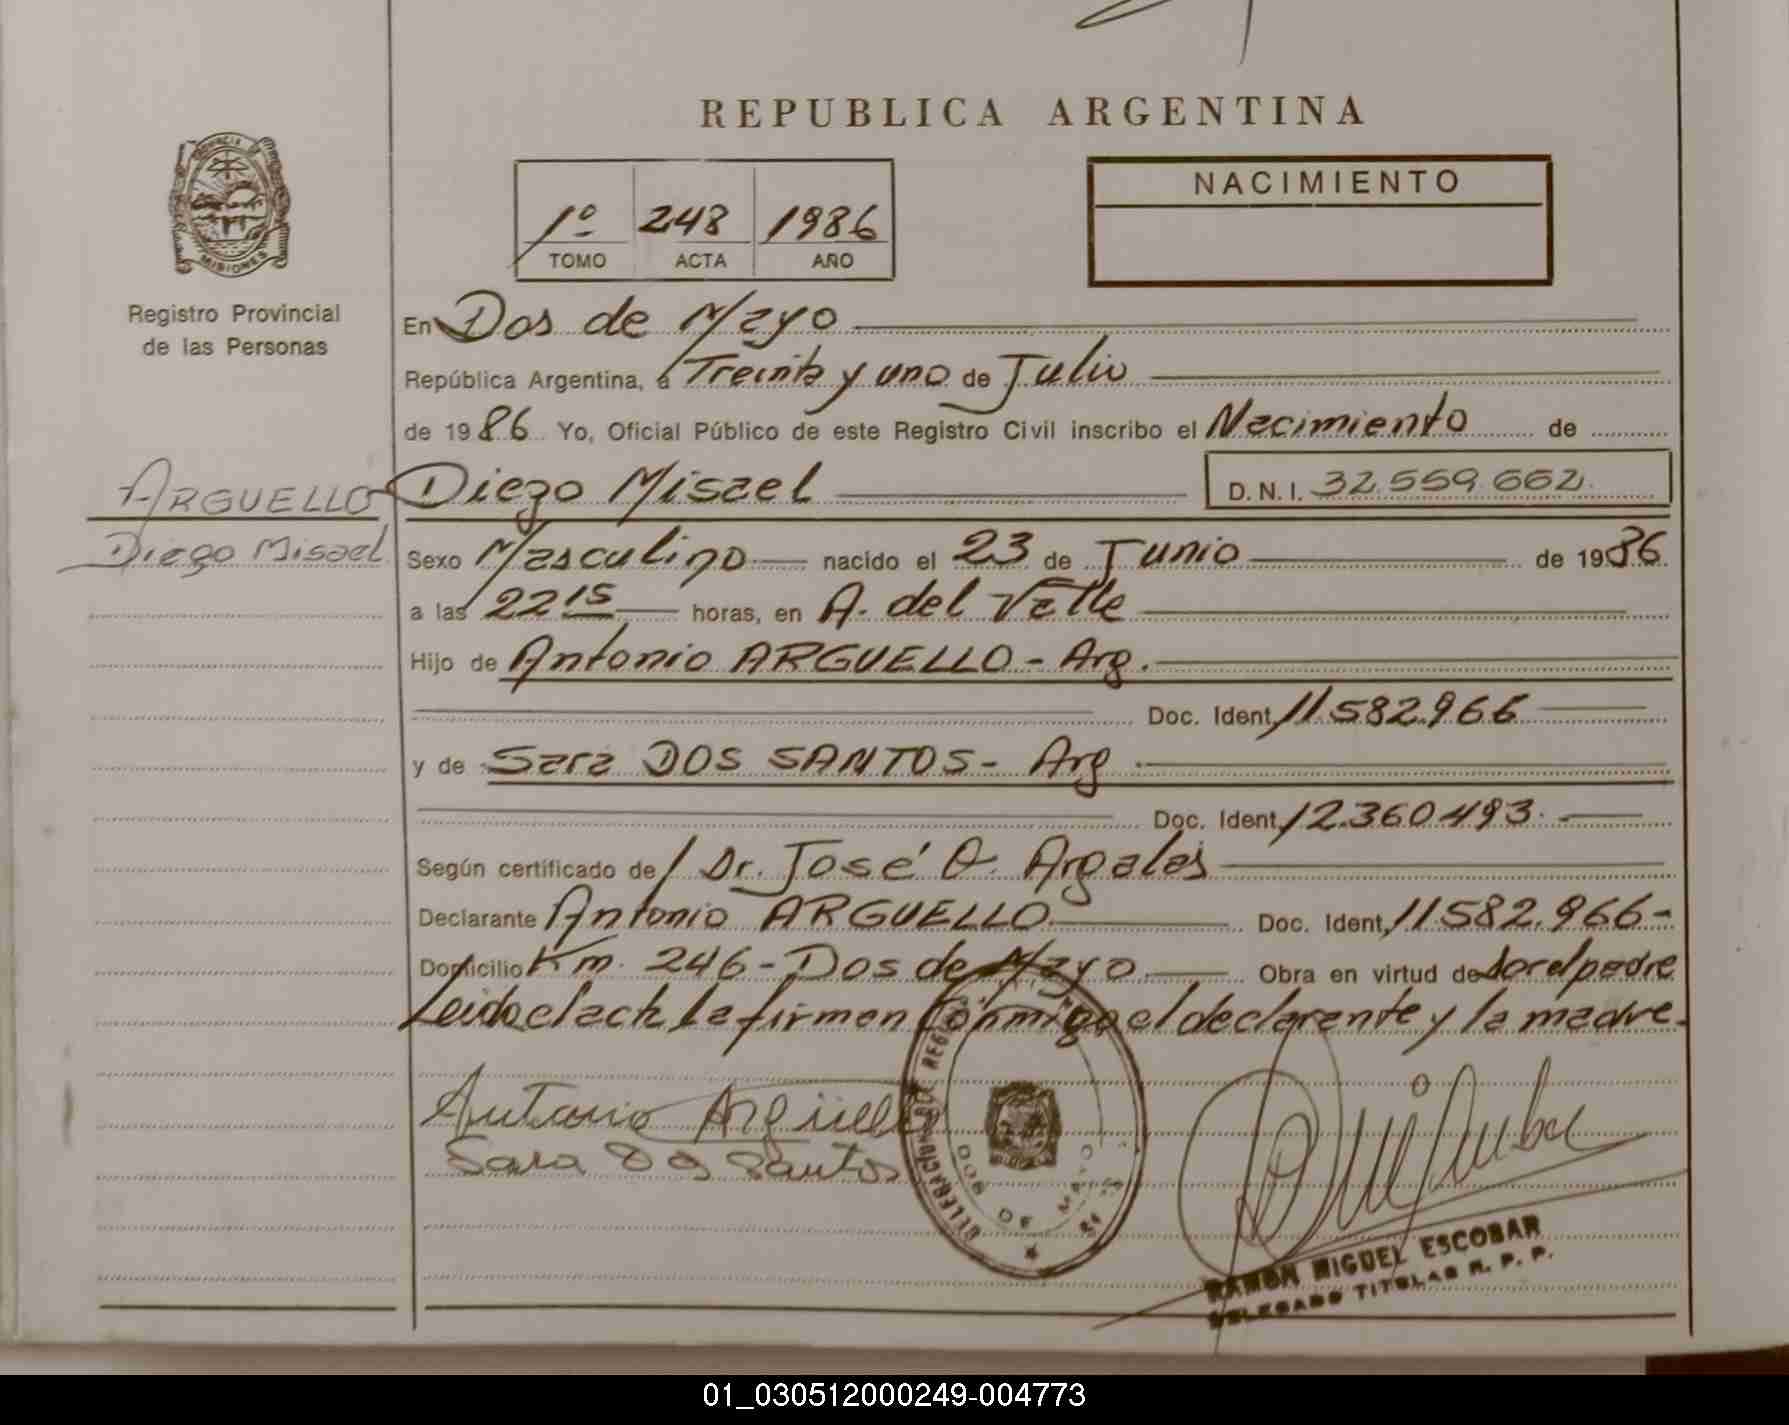 REPUBLICA ARGENTINA
PROVINCIA DE
MISIONES
Registro Provincial
de las Personas
1º 248 1986
TOMO ACTA AÑO
NACIMIENTO
En Dos de Mayo
República Argentina, a Treinta y uno de Julio
de 1986 Yo, Oficial Público de este Registro Civil inscribo el Nacimiento de
ARGUELLO
Diego Misael
Diego Misael
D.N.I. 32.559.662
Sexo Masculino nacido el 23 de Junio de 1986
a las 22 15 horas, en A. del Valle
Hijo de Antonio ARGUELLO - Arg.
Doc. Ident. 11.582.966
y de Sara DOS SANTOS - Arg
Doc. Ident. 12.360.493
Según certificado de Dr. José A. Argalas
Declarante Antonio ARGUELLO Doc. Ident. 11.582.966-
Domicilio Km. 246 - Dos de Mayo Obra en virtud de sor el padre
Leido el acta la firman conmigo el declarante y la madre.
Antonio Argüello
Sara Dos Santos
DOS DE MAYO
RAMON MIGUEL ESCOBAR
DELEGADO TITULAR R. P. P.
01_030512000249-004773